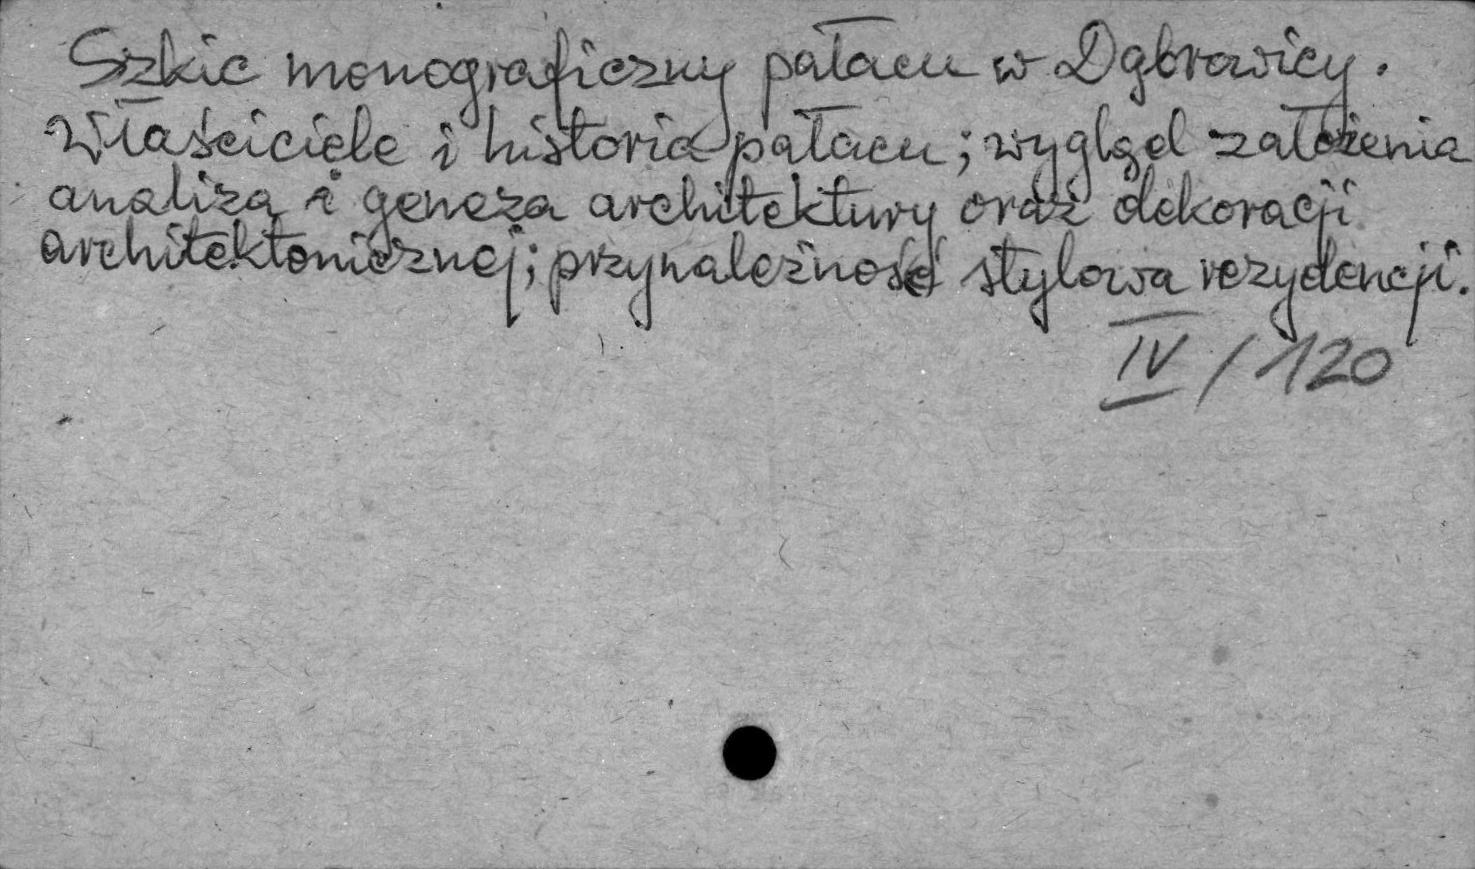 Szkic monograficzny pałacu w Dąbrowicy.
Właściciele i historia pałacu; wygląd założenia
analiza i geneza architektury oraz dekoracji
architektonicznej; przynależność stylowa rezydencji.
IV / 120